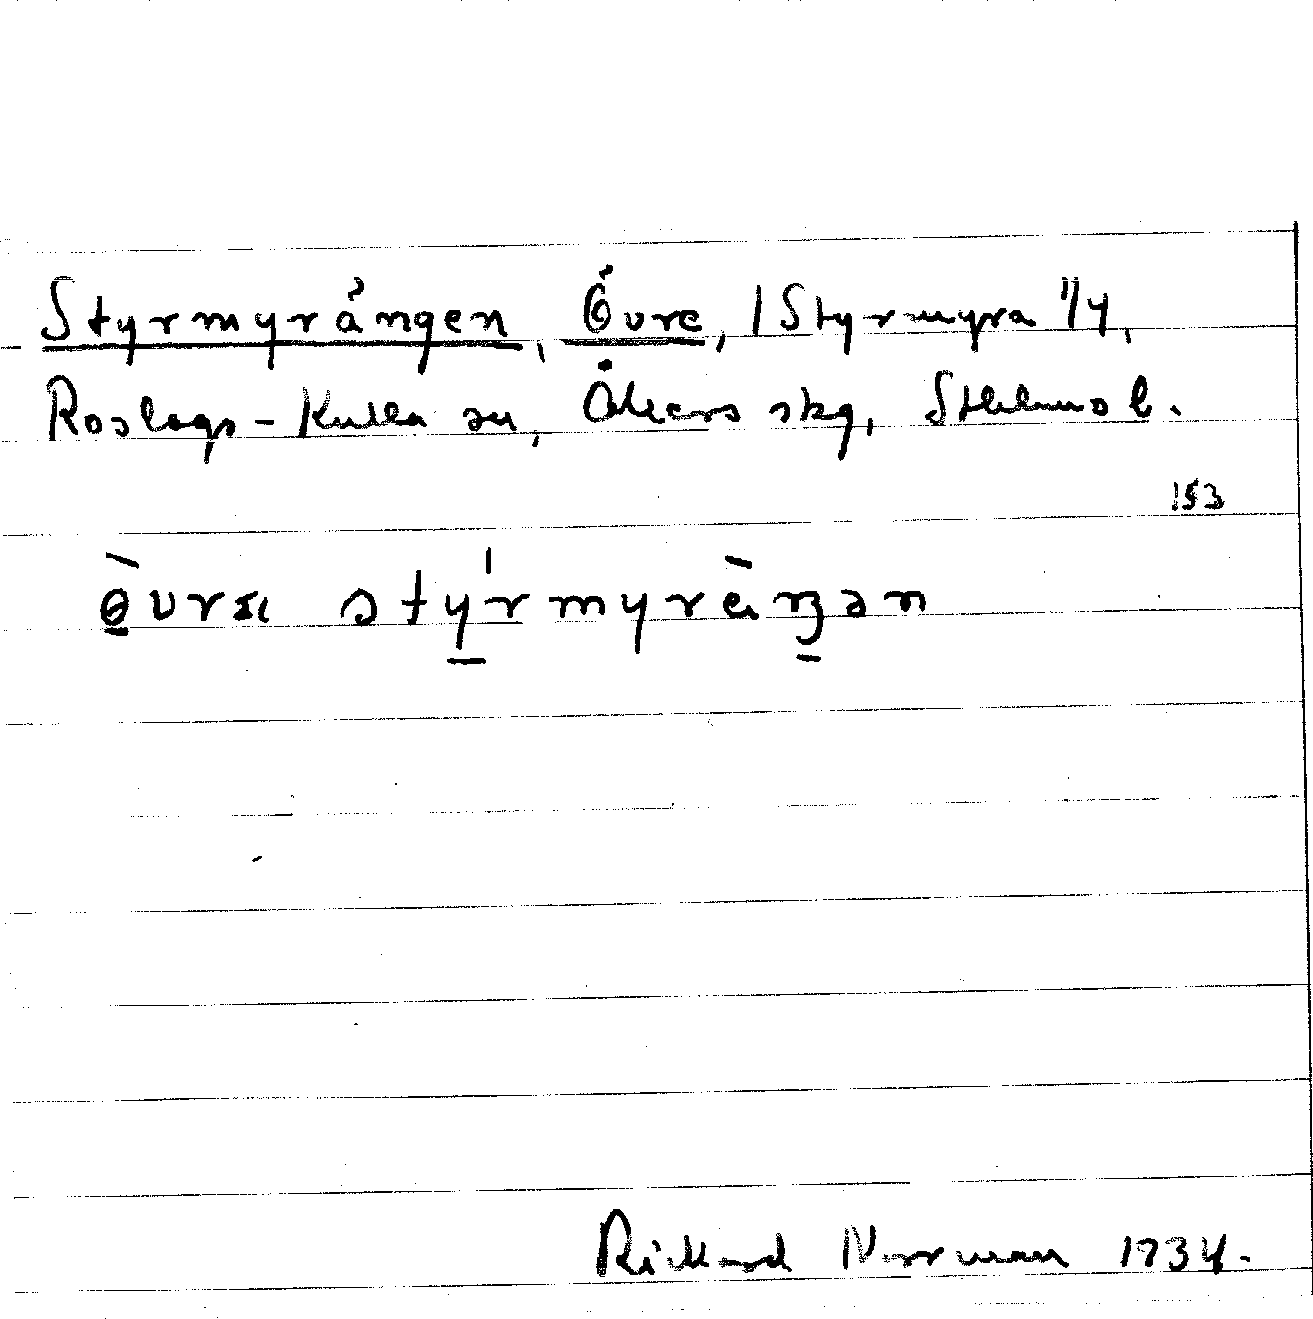 Styrmyrängen, Övre, /Styrmyra 1/4,
Roslags-Kulla sn, Åkers skg, Sthlms l.
153
styrmyräŋən
Rickard Norrman 1934.